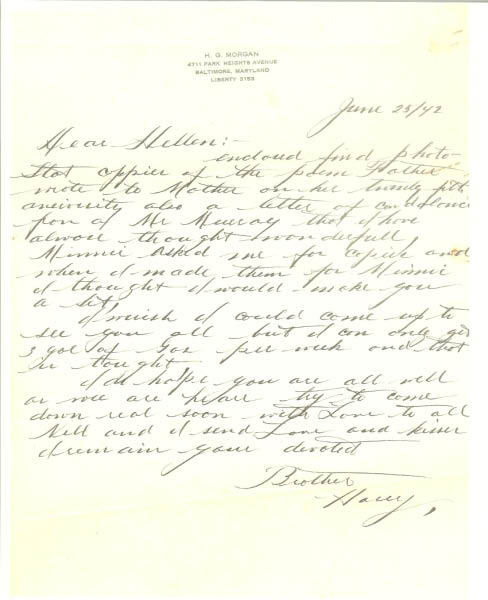 H. G. MORGAN
4711 PARK HEIGHTS AVENUE
BALTIMORE, MARYLAND
LIBERTY 3153
June 23/42
Dear Hellen:-
enclosed find photo-
stat coppies of the poem Father
wrote to Mother on her twenty fifth
aniversity also a letter of condolence
from a Mr Murray that I have
always thought wonderfull
Minnie asked me for copies and
when I made them for Minnie
I thought I would make you
a set,
I wish I could come up to
see you all but I can only get
3 gal of Gas per week and that
is tought
I do hope you are all well
as wee are heare try to come
down real soon with Love to all
Nell and I send Love and kisses
I remain your devoted
Brother
Harry,